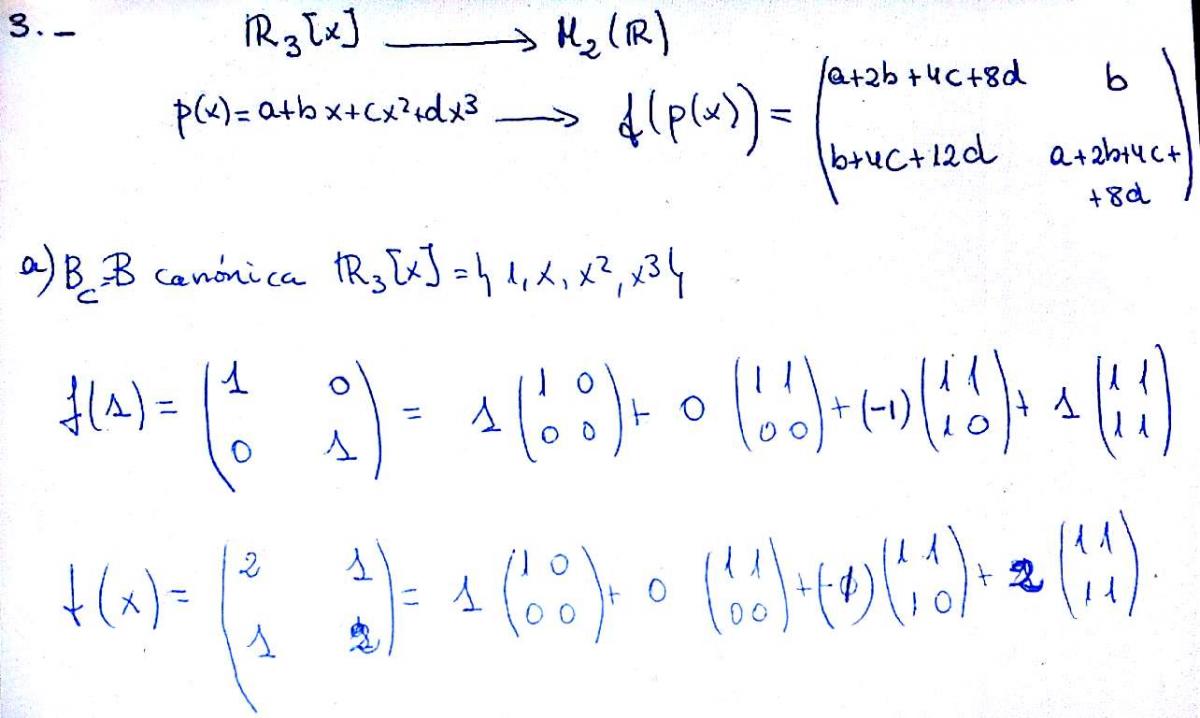 3.- ℝ₃[x] ⟶ M₂(ℝ)
p(x)=a+bx+cx²+dx³ ⟶ f(p(x)) = ( a+2b+4c+8d b
b+4c+12d a+2b+4c+
+8d )
a) B_c=B canónica ℝ₃[x] = { 1, x, x², x³ }
f(1) = ( 1 0 ; 0 1 ) = 1 ( 1 0 ; 0 0 ) + 0 ( 1 1 ; 0 0 ) + (-1) ( 1 1 ; 1 0 ) + 1 ( 1 1 ; 1 1 )
f(x) = ( 2 1 ; 1 2 ) = 1 ( 1 0 ; 0 0 ) + 0 ( 1 1 ; 0 0 ) + (-1) ( 1 1 ; 1 0 ) + 2 ( 1 1 ; 1 1 ).